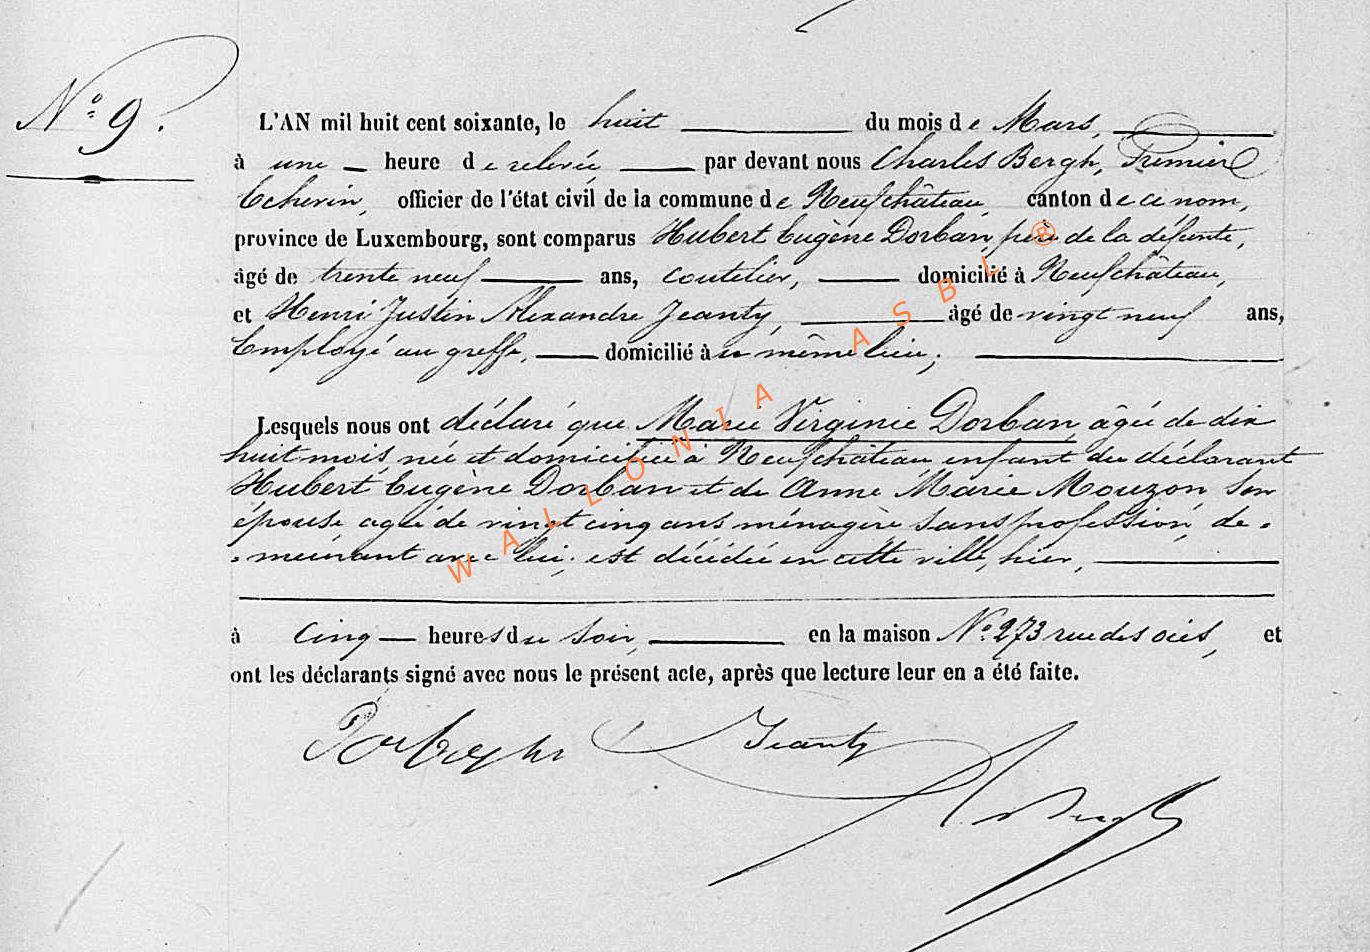 N° 9.
L'AN mil huit cent soixante, le huit du mois de Mars,
à une heure de relevée par devant nous Charles Bergh, Premier
Echevin, officier de l'état civil de la commune de Neufchâteau, canton de ce nom,
province de Luxembourg, sont comparus Hubert Eugène Dorban, père de la défunte,
âgé de trente neuf ans, coutelier, domicilié à Neufchâteau,
et Henri Justin Alexandre Jeanty, âgé de vingt neuf ans,
Employé au greffe, domicilié à u même lieu;
Lesquels nous ont déclaré que Marie Virginie Dorban âgée de dix
huit mois, née et domiciliée à Neufchâteau enfant du déclarant
Hubert Eugène Dorban et de Anne Marie Mouzon son
épouse agée de vingt cinq ans ménagère sans profession, de=
=meurant avec lui, est décédée en cette ville, hier,
à cinq heures du soir, en la maison N° 273 rue des oies, et
ont les déclarants signé avec nous le présent acte, après que lecture leur en a été faite.
Jeanty
WALLONIA ASBL ®